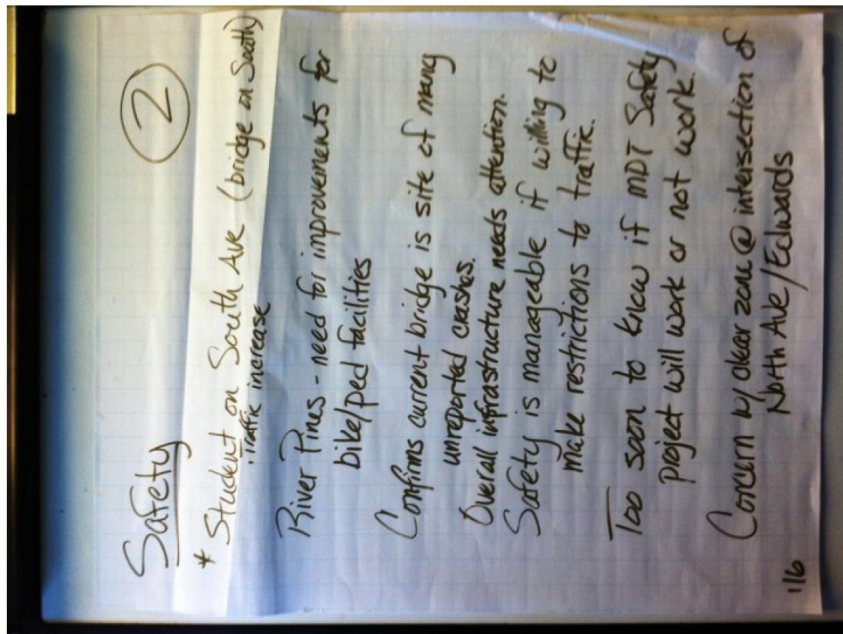 Safety
2
* Student on South Ave (bridge on South)
· Traffic increase
River Pines - need for improvements for
bike/ped facilities
Confirms current bridge is site of many
unreported crashes.
Overall infrastructure needs attention.
Safety is manageable if willing to
make restrictions to traffic.
Too soon to know if MDT Safety
project will work or not work.
Concern w/ clear zone @ intersection of
North Ave/Edwards
1/6